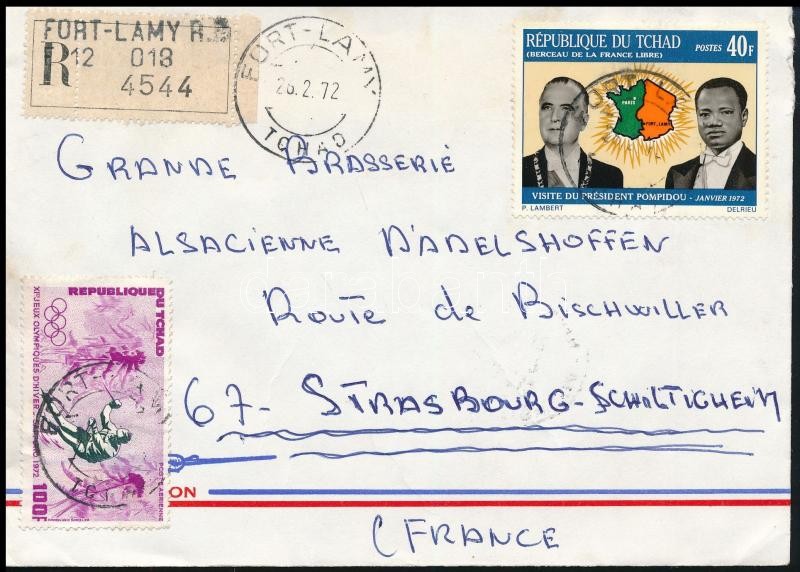 FORT-LAMY R.P
R 12 013
4544
FORT-LAMY
26.2.72
TCHAD
RÉPUBLIQUE DU TCHAD
(BERCEAU DE LA FRANCE LIBRE)
POSTES 40F
PARIS
FORT-LAMY
VISITE DU PRÉSIDENT POMPIDOU - JANVIER 1972
P. LAMBERT DELRIEU
GRANDE BRASSERIE
ALSACIENNE D'ADELSHOFFEN
ROUTE de BISCHWILLER
67- STRASBOURG-SCHILTIGHEIM
(FRANCE
REPUBLIQUE DU TCHAD
XIes JEUX OLYMPIQUES D'HIVER 1972
POSTE AERIENNE
100F
ION